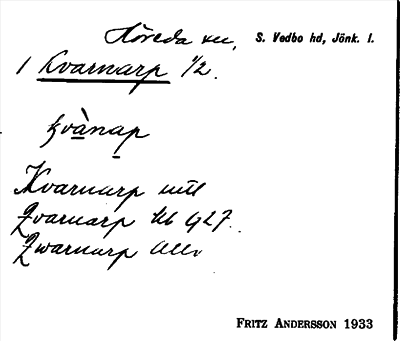 Höreda sn, S. Vedbo hd, Jönk. l.
1 Kvarnarp 1/2.
kvànap
Kvarnarp
Qvarnarp Kb 927.
Qwarnarp
FRITZ ANDERSSON 1933